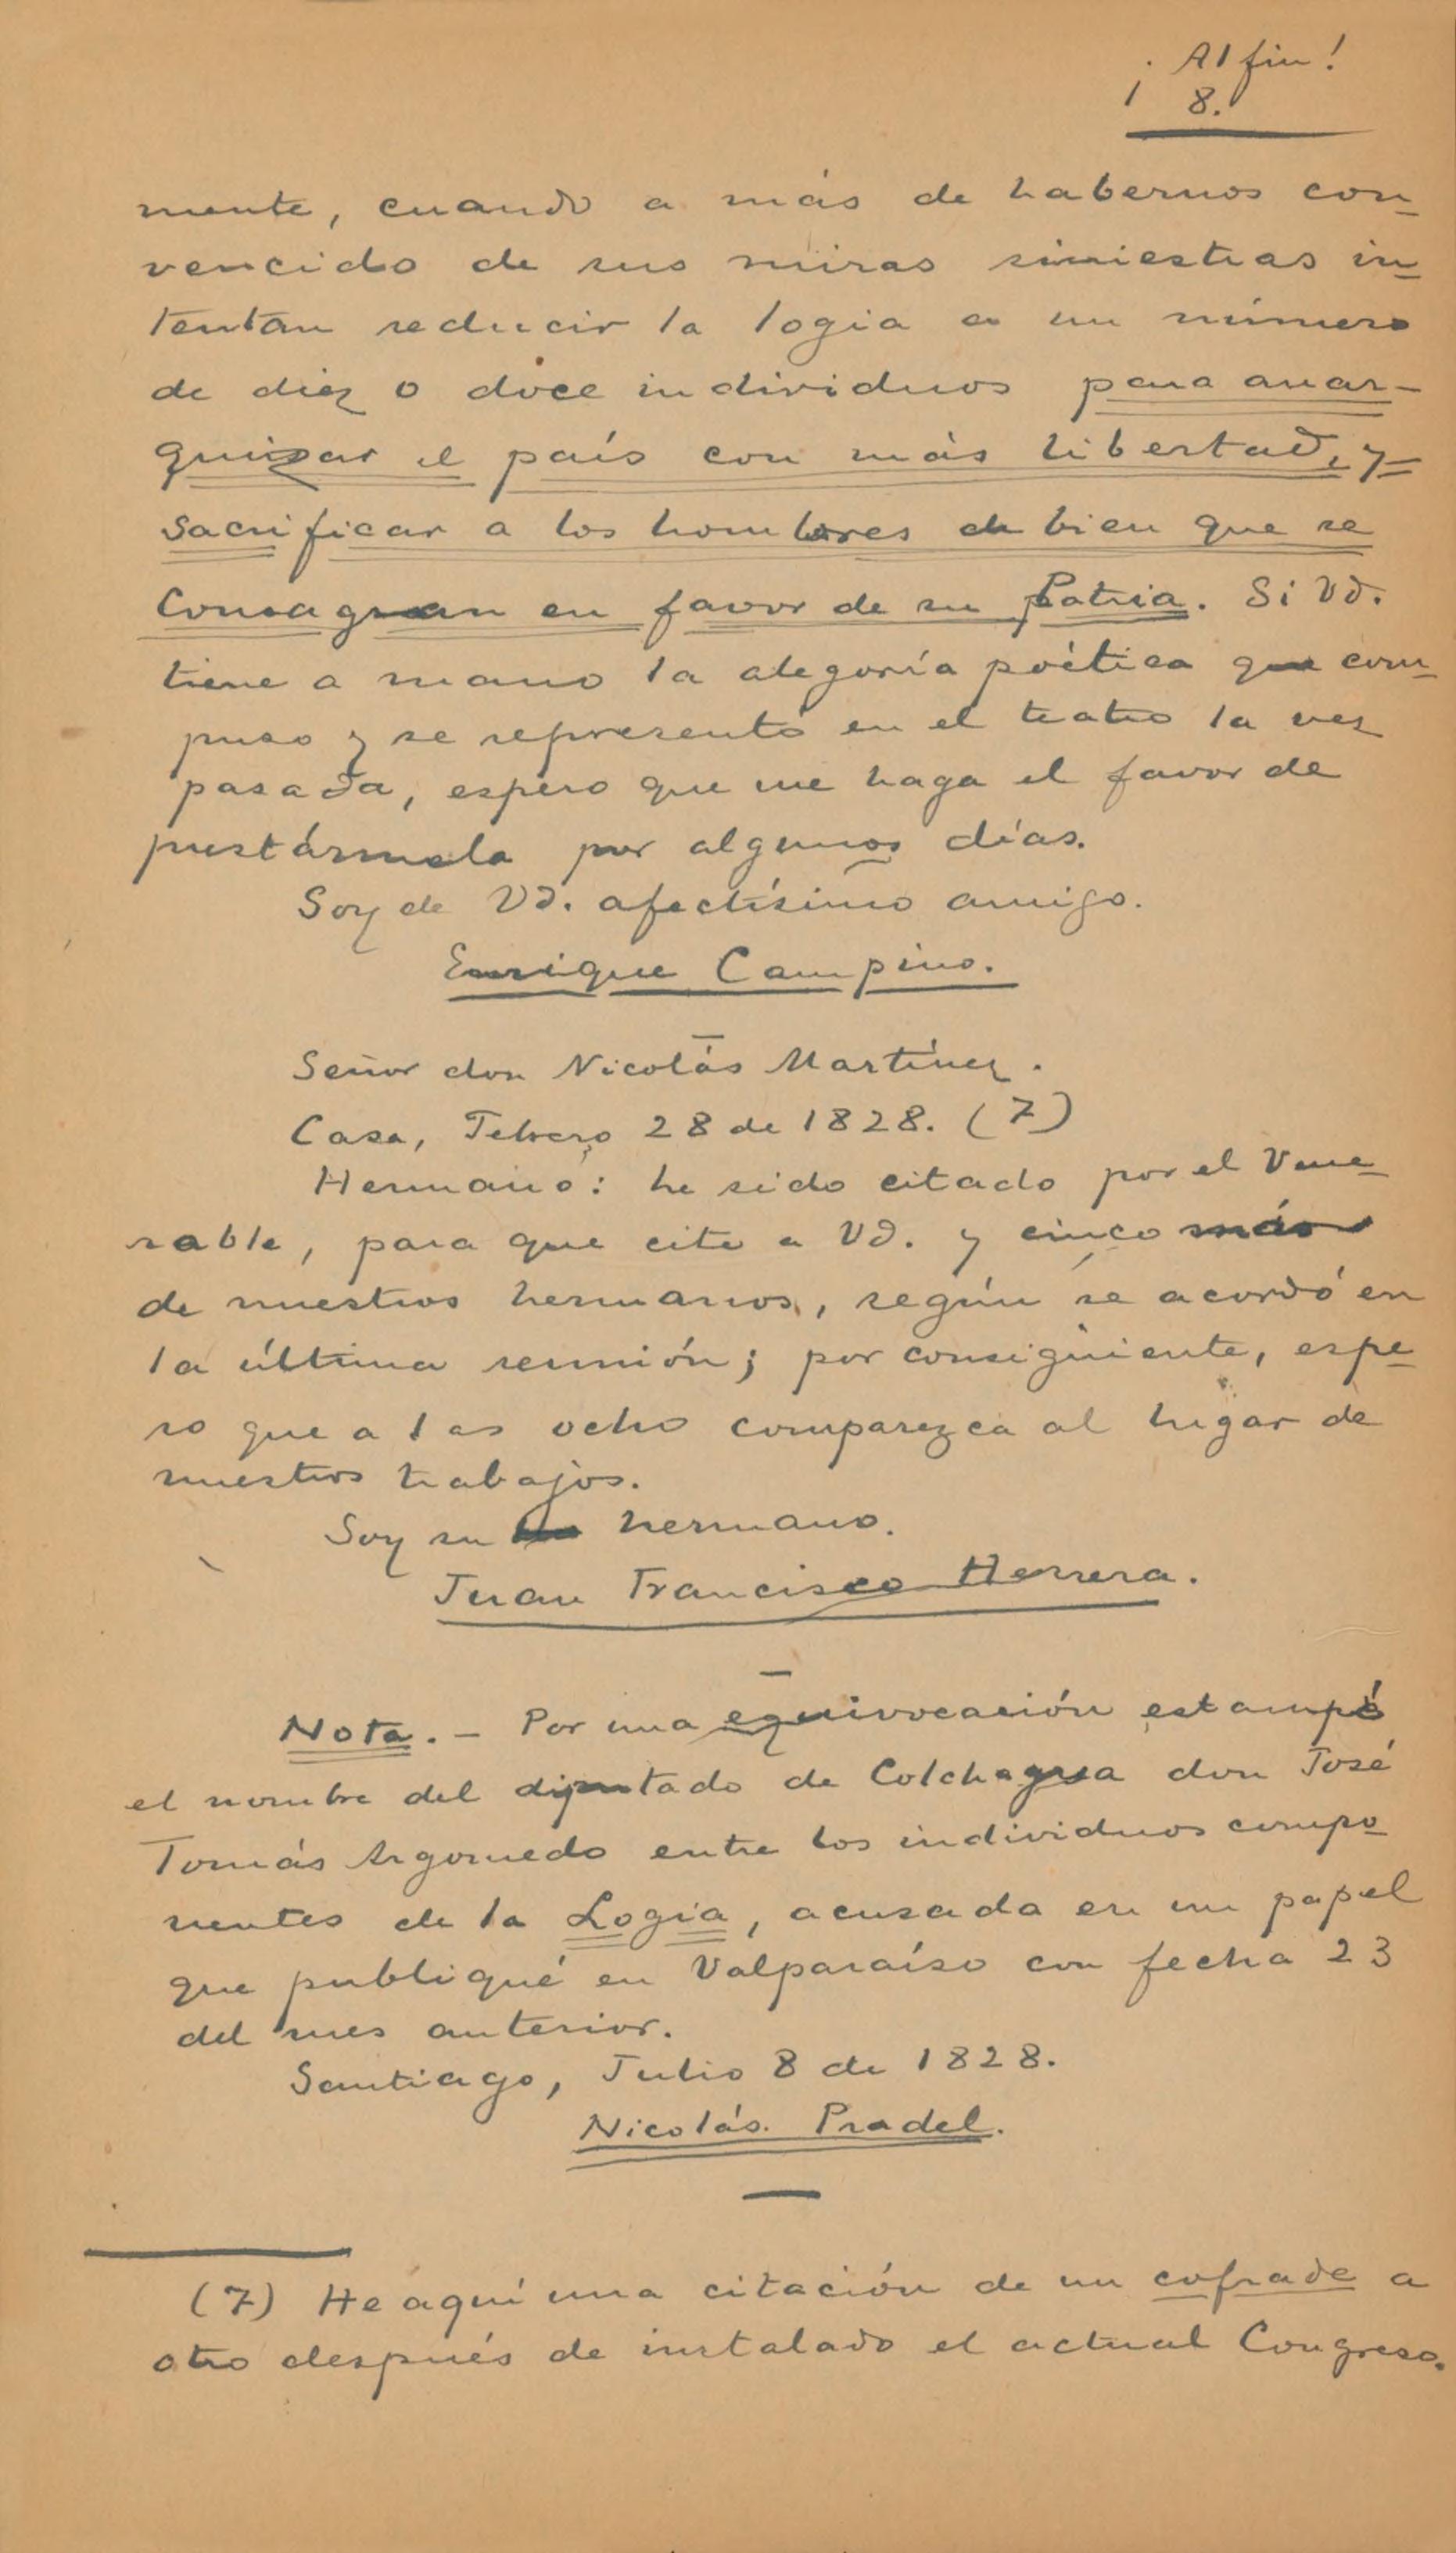 ¡ Al fin!
8.
mente, cuando a más de habernos con-
vencido de sus miras siniestras in-
tentan reducir la logia a un número
de diez o doce individuos para anar-
quizar el país con más libertad, y
sacrificar a los hombres de bien que se
consagran en favor de su Patria. Si Vd.
tiene a mano la alegoría poética que com-
puso y se representó en el teatro la vez
pasada, espero que me haga el favor de
prestármela por algunos días.
Soy de Vd. afectísimo amigo.
Enrique Campino.
Señor don Nicolás Martínez.
Casa, Febrero 28 de 1828. (7)
Hermano: he sido citado por el Vene-
rable, para que cite a Vd. y cinco más
de nuestros hermanos, según se acordó en
la última reunión; por consiguiente, espe-
ro que a las ocho comparezca al lugar de
nuestros trabajos.
Soy su hermano.
Juan Francisco Herrera.
Nota. - Por una equivocación estampé
el nombre del diputado de Colchagua don José
Tomás Argomedo entre los individuos compo-
nentes de la Logia, acusada en un papel
que publiqué en Valparaíso con fecha 23
del mes anterior.
Santiago, Julio 8 de 1828.
Nicolás Pradel.
(7) He aquí una citación de un cofrade a
otro después de instalado el actual Congreso.